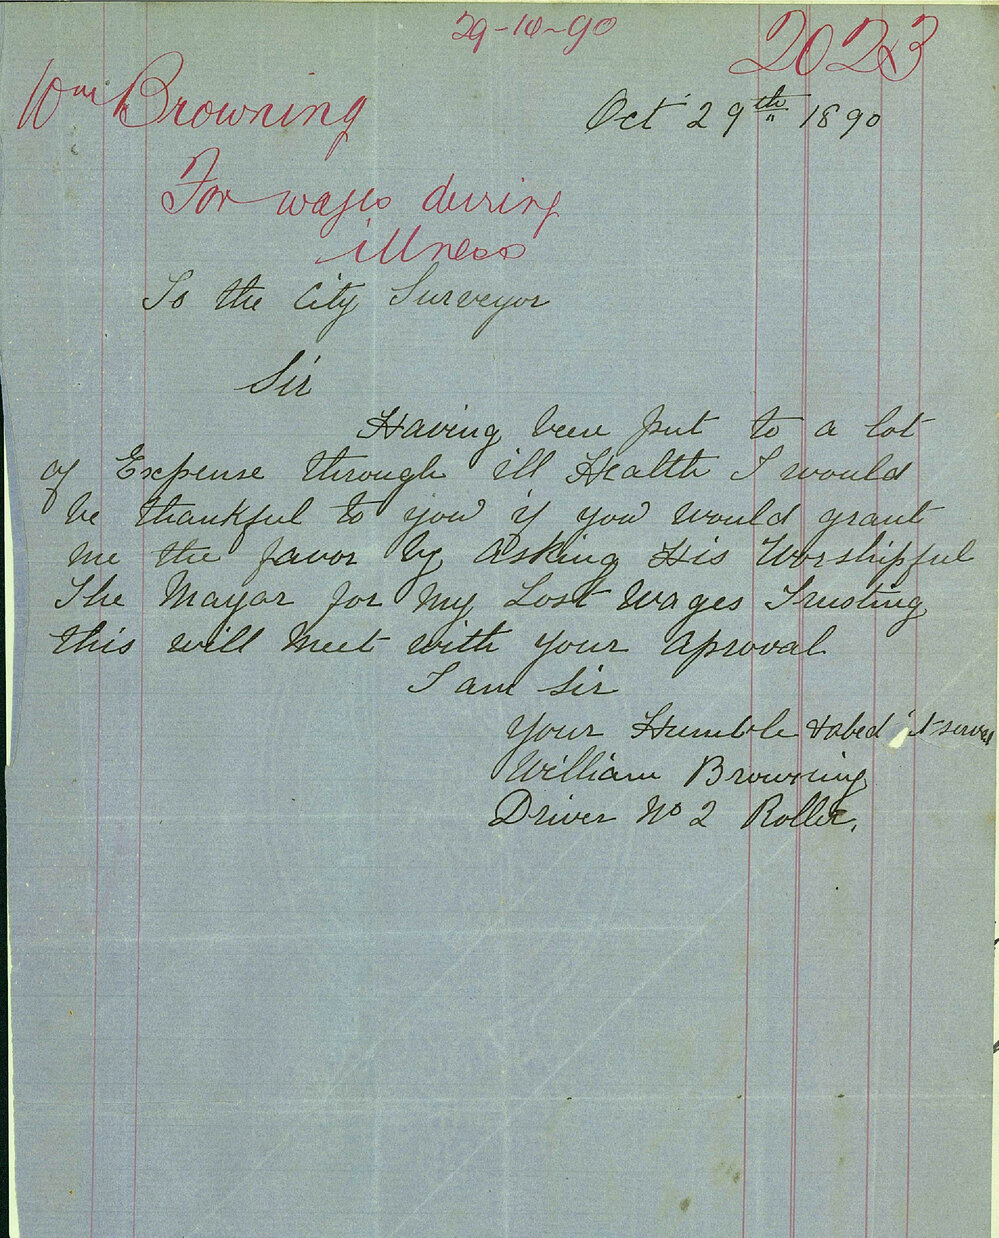 29-10-90
2023
Wm Browning
Oct 29th 1890
For wages during
illness
To the City Surveyor
Sir
Having been put to a lot
of Expense through ill Health I would
be thankful to you if you would grant
me the favor by Asking His Worshipful
The Mayor for My Lost Wages Trusting
this will Meet with your Aproval
I am Sir
Your Humble &
William Browning
Driver No 2 Roller.